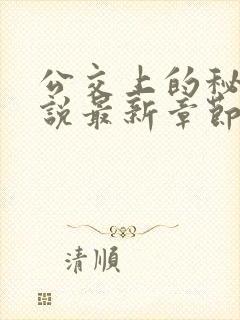 公交上的秘
説最新章節
清順